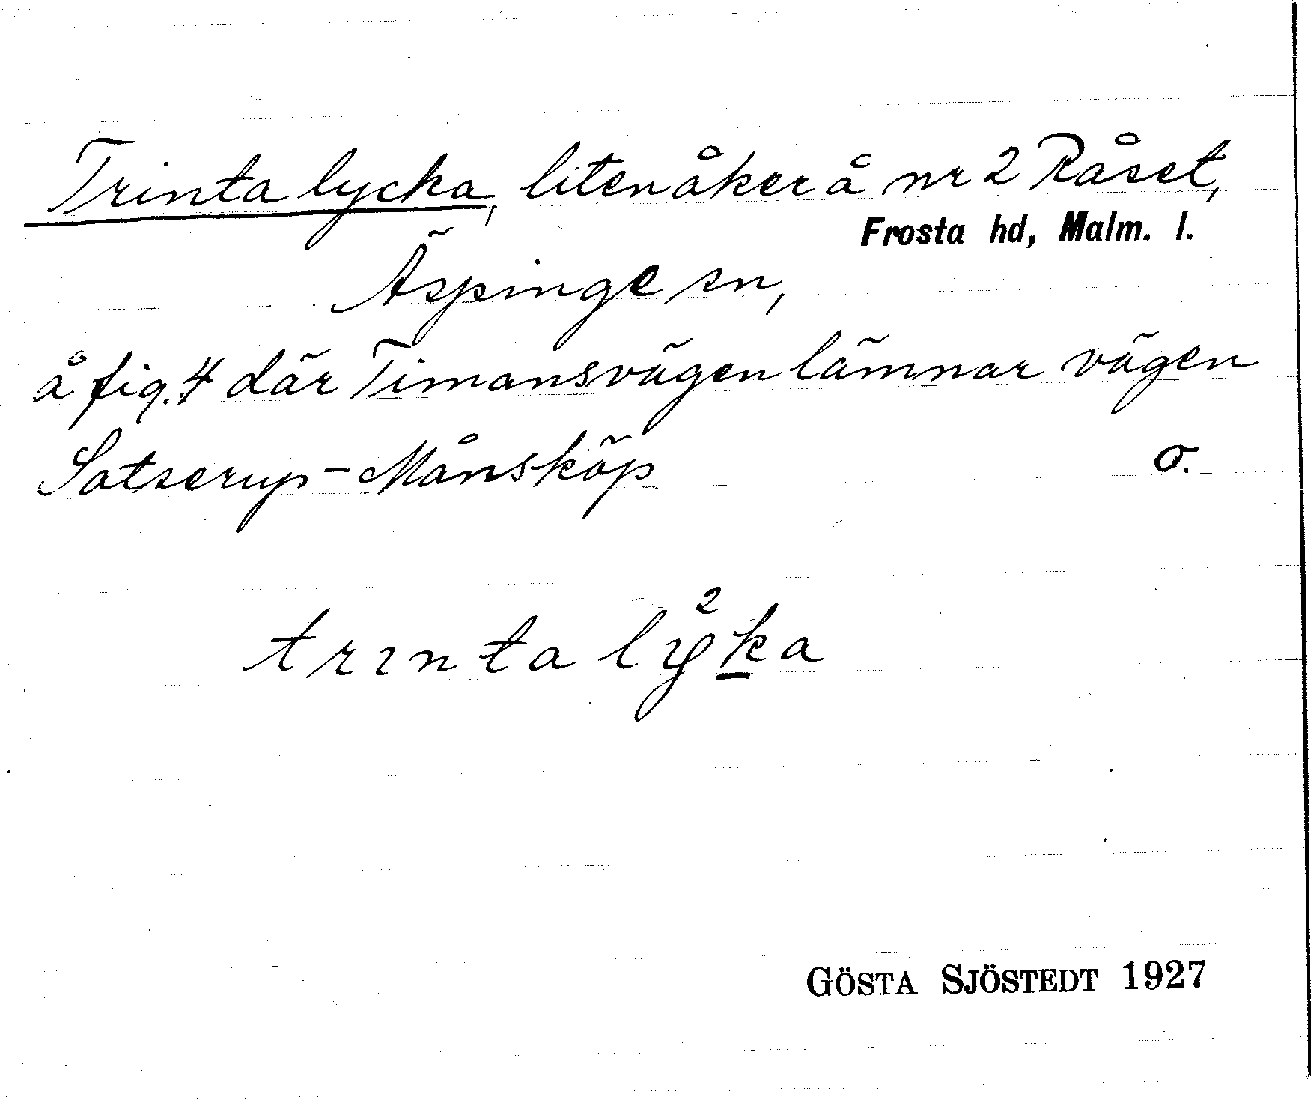 Trinta lycka, liten åker å nr 2 Råset,
Frosta hd, Malm. l.
Äspinge sn,
å fig. 4 där Timansvägen lämnar vägen
Satserup-Månsköp σ.
trınta lẙ²ka
GÖSTA SJÖSTEDT 1927